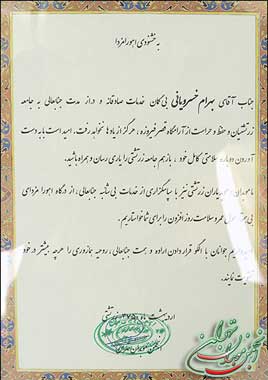 به خشنودی اهورامزدا
جناب آقای بهرام خسرویانی بی‌گمان خدمات صادقانه و دراز مدت جنابعالی به جامعه
زرتشتیان و حفظ و حراست از آرامگاه قصر فیروزه، هرگز از یادها نخواهد رفت. امید است با به دست
آوردن دوباره سلامتی کامل خود، بازهم جامعه زرتشتی را یاری رسان و همراه باشید.
ما همیاران زرتشتی نیز با سپاسگزاری از خدمات بی شائبه جنابعالی، از درگاه اهورا مزدای
بی عمر و سلامت روز افزون را برای شما خواستاریم.
جوانان با الگو قرار دادن اراده و همت جنابعالی، روحیه همازوری را هرچه بیشتر در خود
تقویت نمایند.
اردیبهشت ماه ۳۷۵۰ زرتشتی